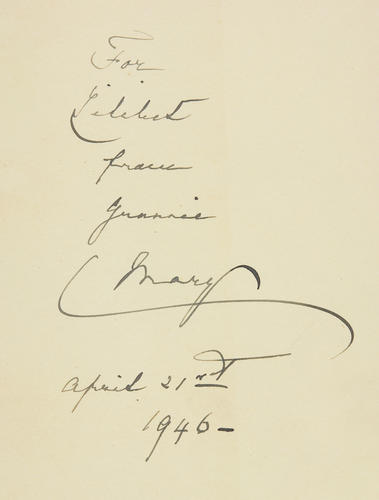 For
Lilibet
from
Grannie
Mary
April 21st
1946-